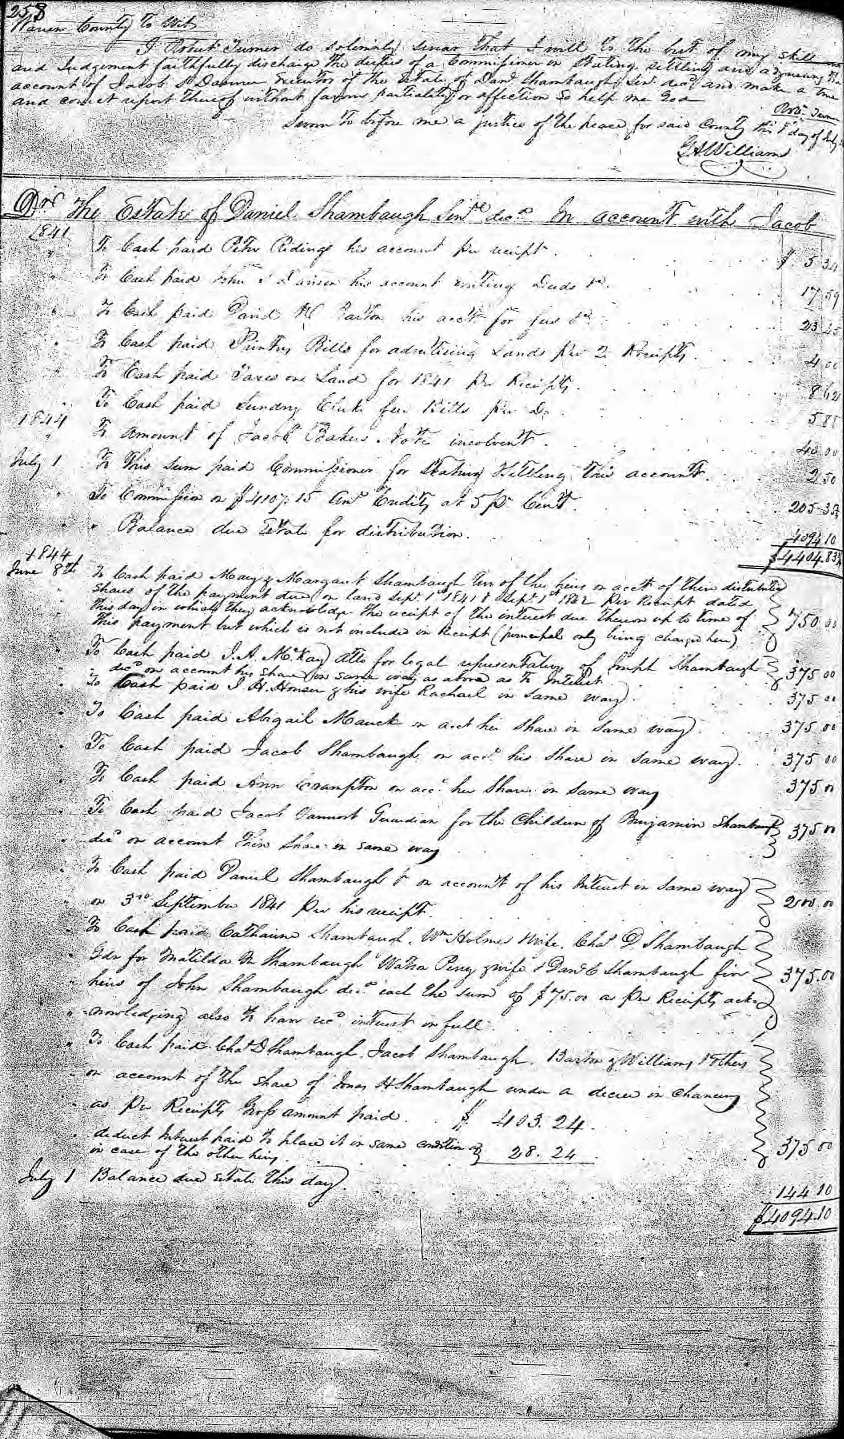 258
Warren County To Wit
I Robert Turner do solemnly swear that I will to the best of my skill
and Judgement faithfully discharge the duties of a Commissioner in Stating settling and adjusting the
account of Jacob Executor of the Estate of Danl Shambaugh Senr decd and make a true
and correct report thereof without favour partiality or affection So help me God
Robt Turner
Sworn to before me a justice of the peace for said County this day of July
Williams
Dr. The Estate of Daniel Shambaugh Senr decd In account with Jacob
1841
To Cash paid Peter Ridings his account per receipt $ 5 34
To Cash paid John his account writing Deeds &c 17 59
To Cash paid David his acct for fees &c 23 45
To Cash paid Printers Bills for advertising Lands per 2 Receipts 4 00
To Cash paid Taxes on Land for 1841 per Receipts 8 62
To Cash paid Sundry Clerks fee Bills per Do 5 88
1844 To amount of Jacob Bakers Note insolvent 40 00
July 1 To this sum paid Commissioner for Stating & Settling this account 2 50
To Commission on $4107.15 Amt Credits at 5 pr Cent 205 35
Balance due Estate for distribution 4094 10
$4404.83
1844
June 8th To Cash paid Mary & Margaret Shambaugh two of the heirs on acct of their distributive
shares of the payment due on land Sept 1st 1841 & Sept 1st 1842 per Receipt dated
this day in which they acknowledge the receipt of the interest due thereon up to time of
this payment but which is not included in Receipt (principal only being charged here) 750 00
To Cash paid I. A. McKay atto for legal representatives of Joseph Shambaugh
decd on account his share in same way as above as to Interest 375 00
To Cash paid J H. & his wife Rachael in same way 375 00
To Cash paid Abigail Mauck on acct her share in same way 375 00
To Cash paid Jacob Shambaugh on acct his share in same way 375 00
To Cash paid Ann Crampton on acct her share in same way 375 00
To Cash paid Jacob Guardian for the Children of Benjamin Shambaugh
decd on account their share in same way 375 00
To Cash paid Daniel Shambaugh Jr on account of his Interest in same way
on 3rd September 1841 per his receipt 200 00
To Cash paid Catharine Shambaugh, Wm Holmes & wife, Chas D Shambaugh
Gdn for Matilda Shambaugh & wife & Danl C Shambaugh five
heirs of John Shambaugh decd each the sum of $75.00 as per Receipts ack- 375.00
nowledging also to have recd interest in full
To Cash paid Chas D Shambaugh, Jacob Shambaugh, Barton & Williams & others
on account of the share of Jonas H Shambaugh under a decree in Chancery
as per Receipts Gross amount paid $ 403.24
deduct Interest paid to place it in same condition 28.24 375 00
in case of the other heirs
July 1 Balance due Estate this day 144 10
$4094.10